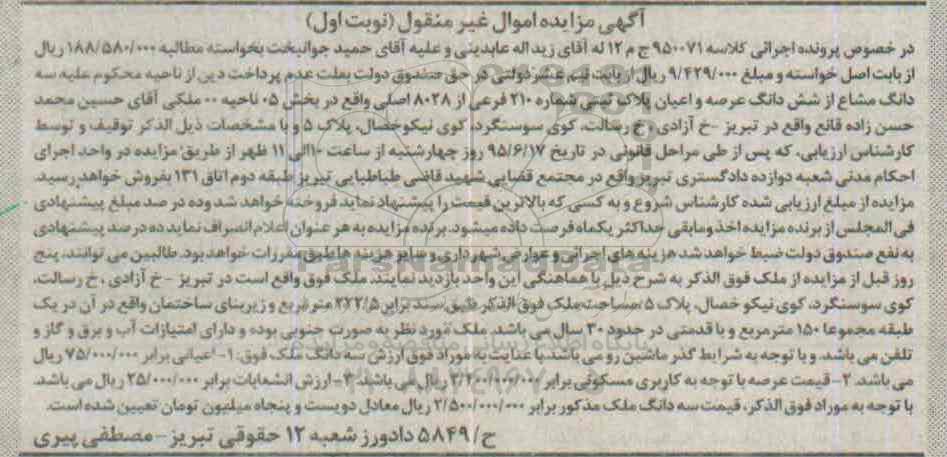 آگهی مزایده اموال غیر منقول (نوبت اول)
در خصوص پرونده اجرائی کلاسه ۹۵۰۰۷۱ ج م ۱۲ له آقای زیداله عابدینی و علیه آقای حمید جوانبخت بخواسته مطالبه ۱۸۸/۵۸۰/۰۰۰ ریال
از بابت اصل خواسته و مبلغ ۹/۴۲۹/۰۰۰ ریال از بابت نیم عشر دولتی در حق صندوق دولت بعلت عدم پرداخت دین از ناحیه محکوم علیه سه
دانگ مشاع از شش دانگ عرصه و اعیان پلاک ثبتی شماره ۲۱۰ فرعی از ۸۰۲۸ اصلی واقع در بخش ۰۵ ناحیه ۰۰ ملکی آقای حسین محمد
حسن زاده قانع واقع در تبریز -خ آزادی، خ رسالت، کوی سوسنگرد، کوی نیکوخصال، پلاک ۵ و با مشخصات ذیل الذکر توقیف و توسط
کارشناس ارزیابی، که پس از طی مراحل قانونی در تاریخ ۹۵/۶/۱۷ روز چهارشنبه از ساعت ۱۰ الی ۱۱ ظهر از طریق مزایده در واحد اجرای
احکام مدنی شعبه دوازده دادگستری تبریز واقع در مجتمع قضایی شهید قاضی طباطبایی تبریز طبقه دوم اتاق ۱۳۱ بفروش خواهد رسید.
مزایده از مبلغ ارزیابی شده کارشناس شروع و به کسی که بالاترین قیمت را پیشنهاد نماید فروخته خواهد شد وده در صد مبلغ پیشنهادی
فی المجلس از برنده مزایده اخذ ومابقی حداکثر یکماه فرصت داده میشود. برنده مزایده به هر عنوان اعلام انصراف نماید ده در صد پیشنهادی
به نفع صندوق دولت ضبط خواهد شد هزینه های اجرائی و عوارض شهرداری و سایر هزینه ها طبق مقررات خواهد بود. طالبین می توانند، پنج
روز قبل از مزایده از ملک فوق الذکر به شرح ذیل با هماهنگی این واحد بازدید نمایند. ملک فوق واقع است در تبریز -خ آزادی، خ رسالت،
کوی سوسنگرد، کوی نیکو خصال، پلاک ۵، مساحت ملک فوق الذکر طبق سند برابر ۲۲۲/۵ متر مربع و زیربنای ساختمان واقع در آن در یک
طبقه مجموعا ۱۵۰ متر مربع و با قدمتی در حدود ۳۰ سال می باشد. ملک مورد نظر به صورت جنوبی بوده و دارای امتیازات آب و برق و گاز و
تلفن می باشد. و با توجه به شرایط گذر ماشین رو می باشد. با عنایت به موراد فوق ارزش سه دانگ ملک فوق: ۱- اعیانی برابر ۷۵/۰۰۰/۰۰۰ ریال
می باشد. ۲- قیمت عرصه با توجه به کاربری مسکونی برابر ۲/۴۰۰/۰۰۰/۰۰۰ ریال می باشد. ۳- ارزش انشعابات برابر ۲۵/۰۰۰/۰۰۰ ریال می باشد.
با توجه به موراد فوق الذکر، قیمت سه دانگ ملک مذکور برابر ۲/۵۰۰/۰۰۰/۰۰۰ ریال معادل دویست و پنجاه میلیون تومان تعیین شده است.
ح/۵۸۴۹ دادورز شعبه ۱۲ حقوقی تبریز - مصطفی پیری